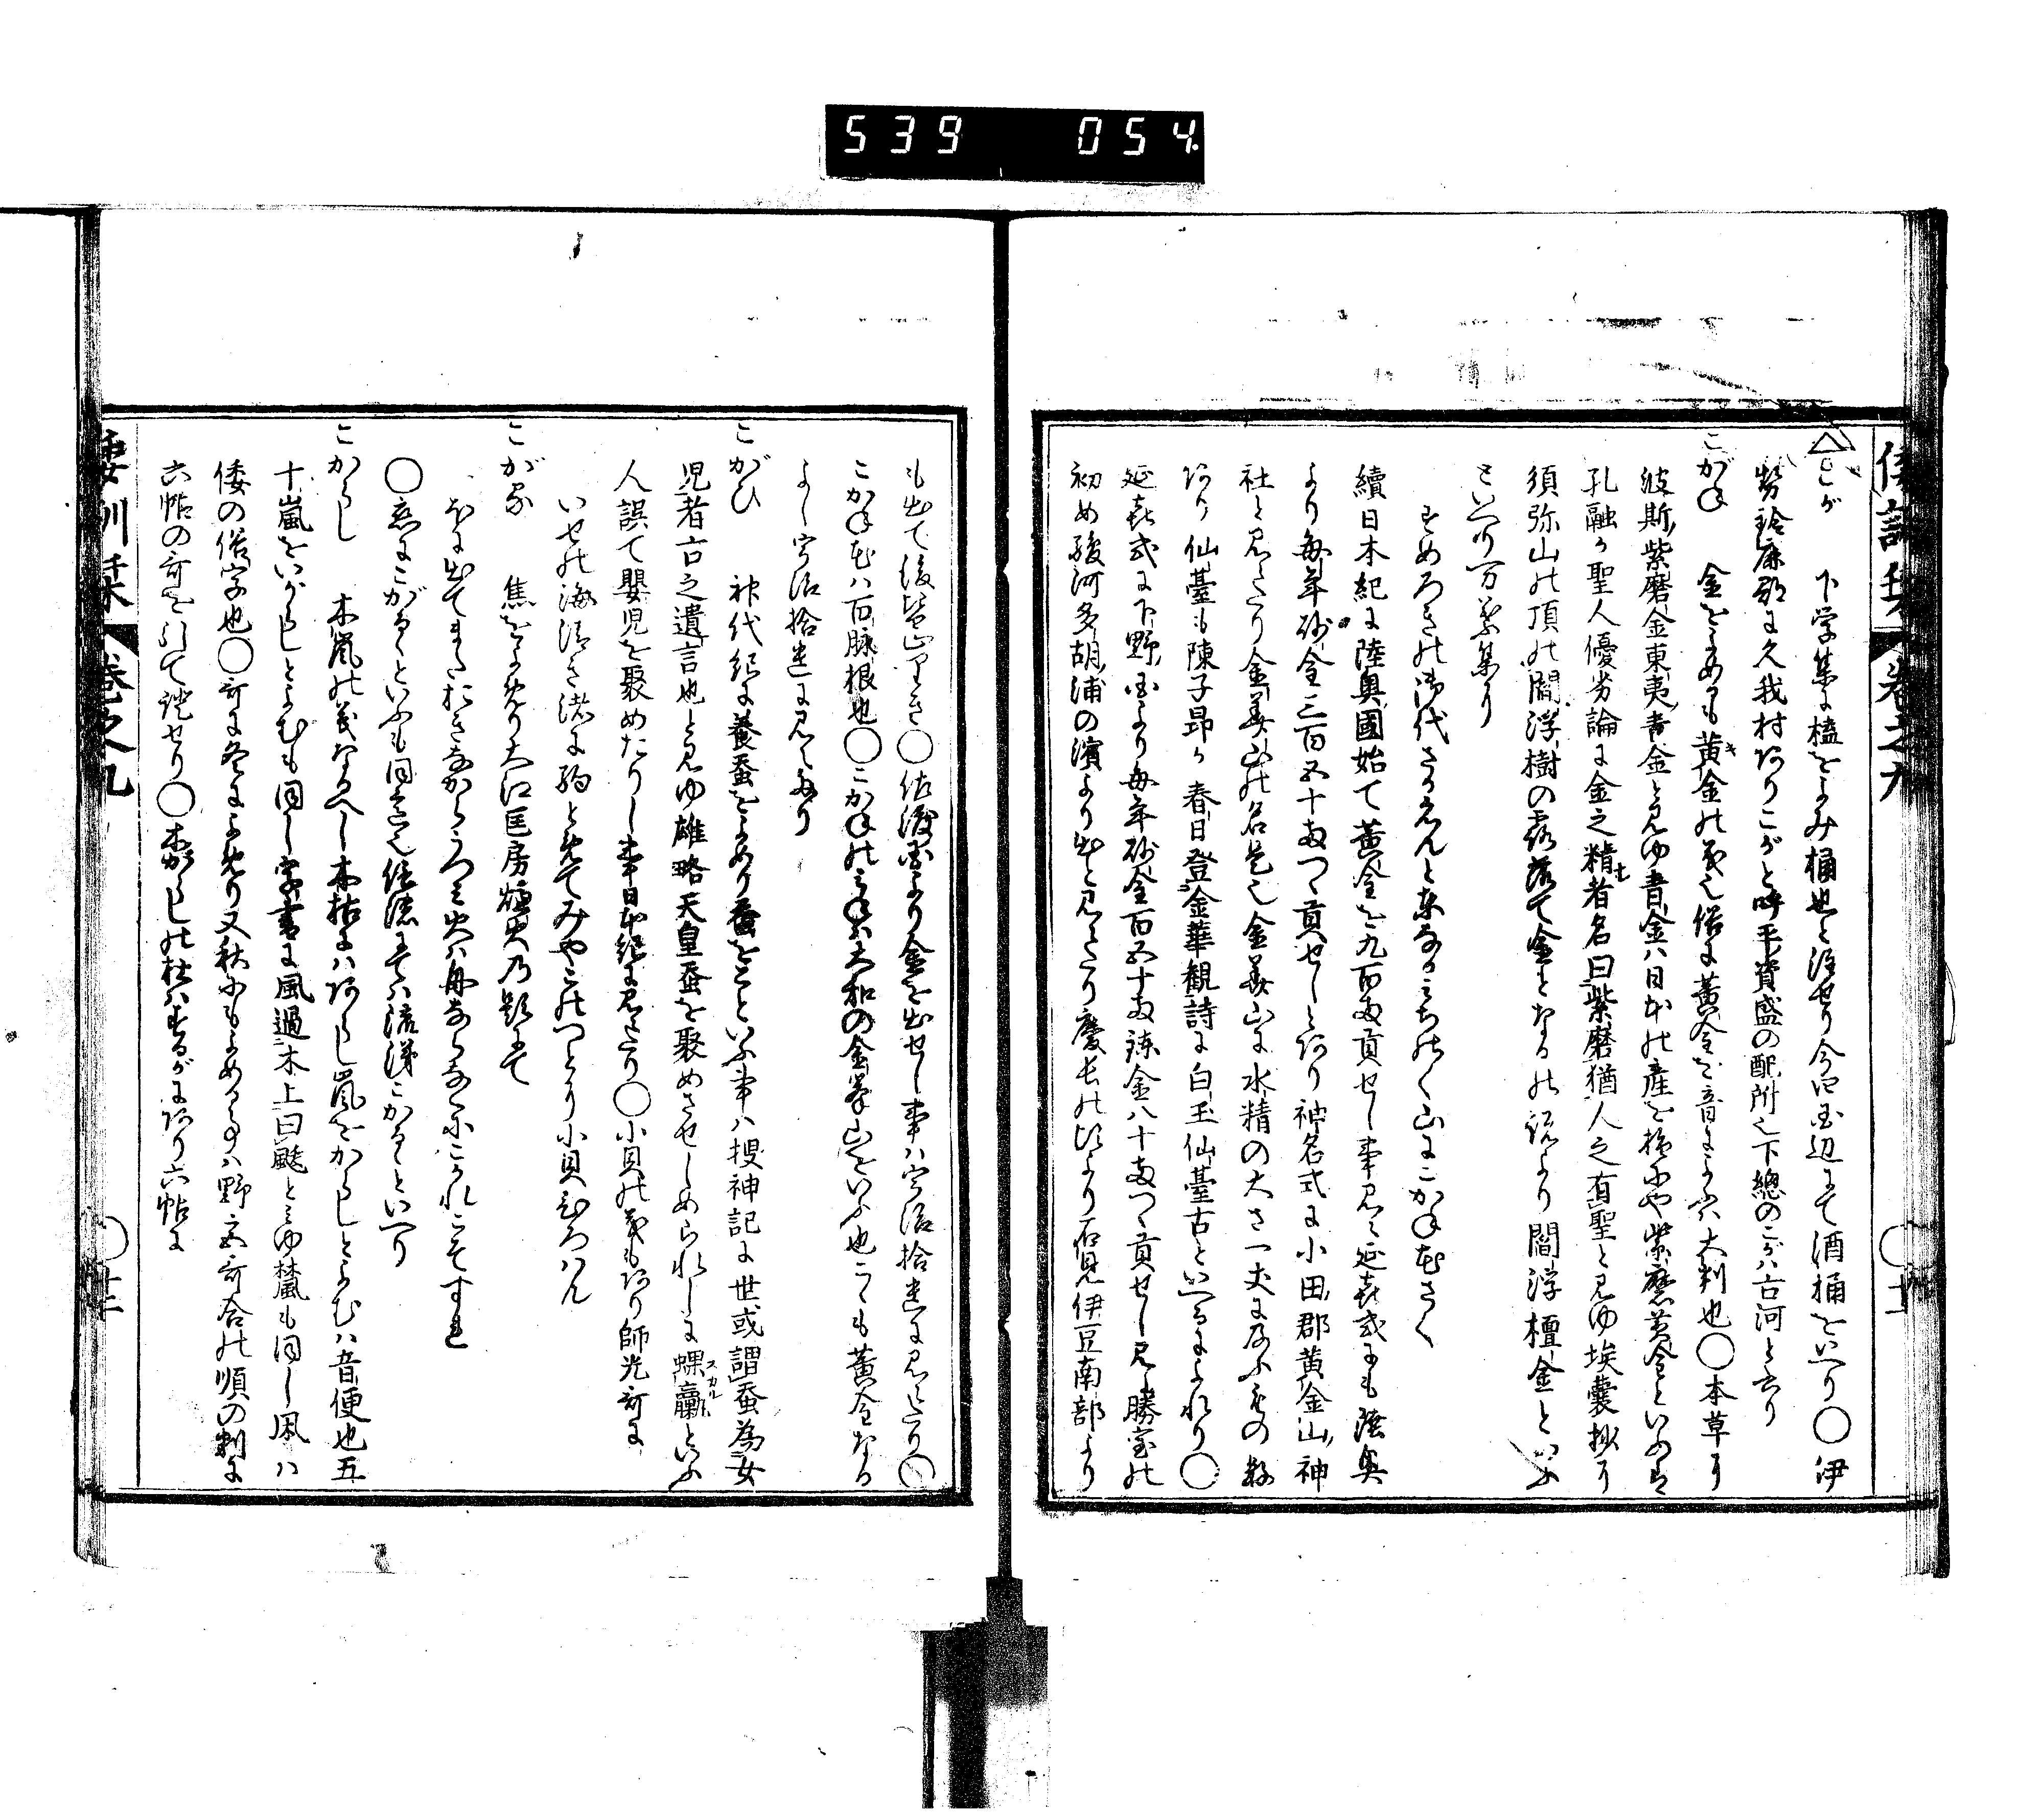 539 054
倭訓栞 巻之九
△こが　下学集に榼をよみ桶也と注せり今四国辺にて酒桶をいへり○伊
勢鈴鹿郡に久我村ありこがと呼平資盛の配所也下總のこがハ古河と云り
こがね　金をよめるも黄金の義也俗に黄金を音によべハ大判也○本草に
波斯紫磨金東夷青金と見ゆ青金ハ日本の産を称にや紫磨黄金といふは
孔融か聖人優劣論に金之精者名曰紫磨猶人之有聖と見ゆ埃嚢抄に
須弥山の頂の閻浮樹の露落て金となるの説より閻浮檀金といふ
といへり万葉集に
すめろきの御代さかえんと東なるみちのく山にこかね花さく
續日本紀に陸奥國始て黄金を九百両貢せし事見え延喜式にも陸奥
より毎年砂金三百五十両つゝ貢せしとあり神名式に小田郡黄金山神
社と見えたり金華山の名是也金華山に水精の大さ一丈に及ふもの数
あり仙臺も陳子昂か春日登金華観詩に白玉仙臺古といへるによれり○
延喜式に下野国より毎年砂金百五十両錬金八十両つゝ貢せし見ゆ勝宝の
初め駿河多胡浦の濱より出と見えたり慶長の頃より石見伊豆南部より
も出て後皆止りき○佐渡国より金を出せし事ハ宇治拾遺に見えたり○
こかね花ハ百脉根也○こかねのみねハ大和の金峯山をいふ也こゝも黄金ある
よし宇治拾遺に見えたり
こがひ　神代紀に養蚕をよめり蚕をことといふ事ハ捜神記に世或謂蚕為女
児者古之遺言也と見ゆ雄略天皇蚕を聚めさせしめられしに蜾蠃スカルといふ
人誤て嬰児を聚めたりし事日本紀に見えたり○小貝の義もあり師光哥に
いせの海清き渚に駒とめてみやこのつとに小貝ひろハん
こがる　焦をよめり大江匡房爐火乃影にて
水に出てまたたきなからうつミ火ハ舟ならなくにこかれこそすれ
○恋にこがるゝといふも同意也伝法にてハ渧涕こかるゝといへり
こからし　木嵐の義なるへし木枯にハあらし嵐をからしとよむハ音便也五
十嵐をいがらしとよむも同し字書に風過木上曰颷とミゆ檒も同し凩ハ
倭の俗字也○哥に冬によめり又秋にもよめる事ハ野宮哥合の順の判に
六帖の哥を引て證せり○木がらしの杜ハするがにあり六帖に
倭訓栞 巻之九